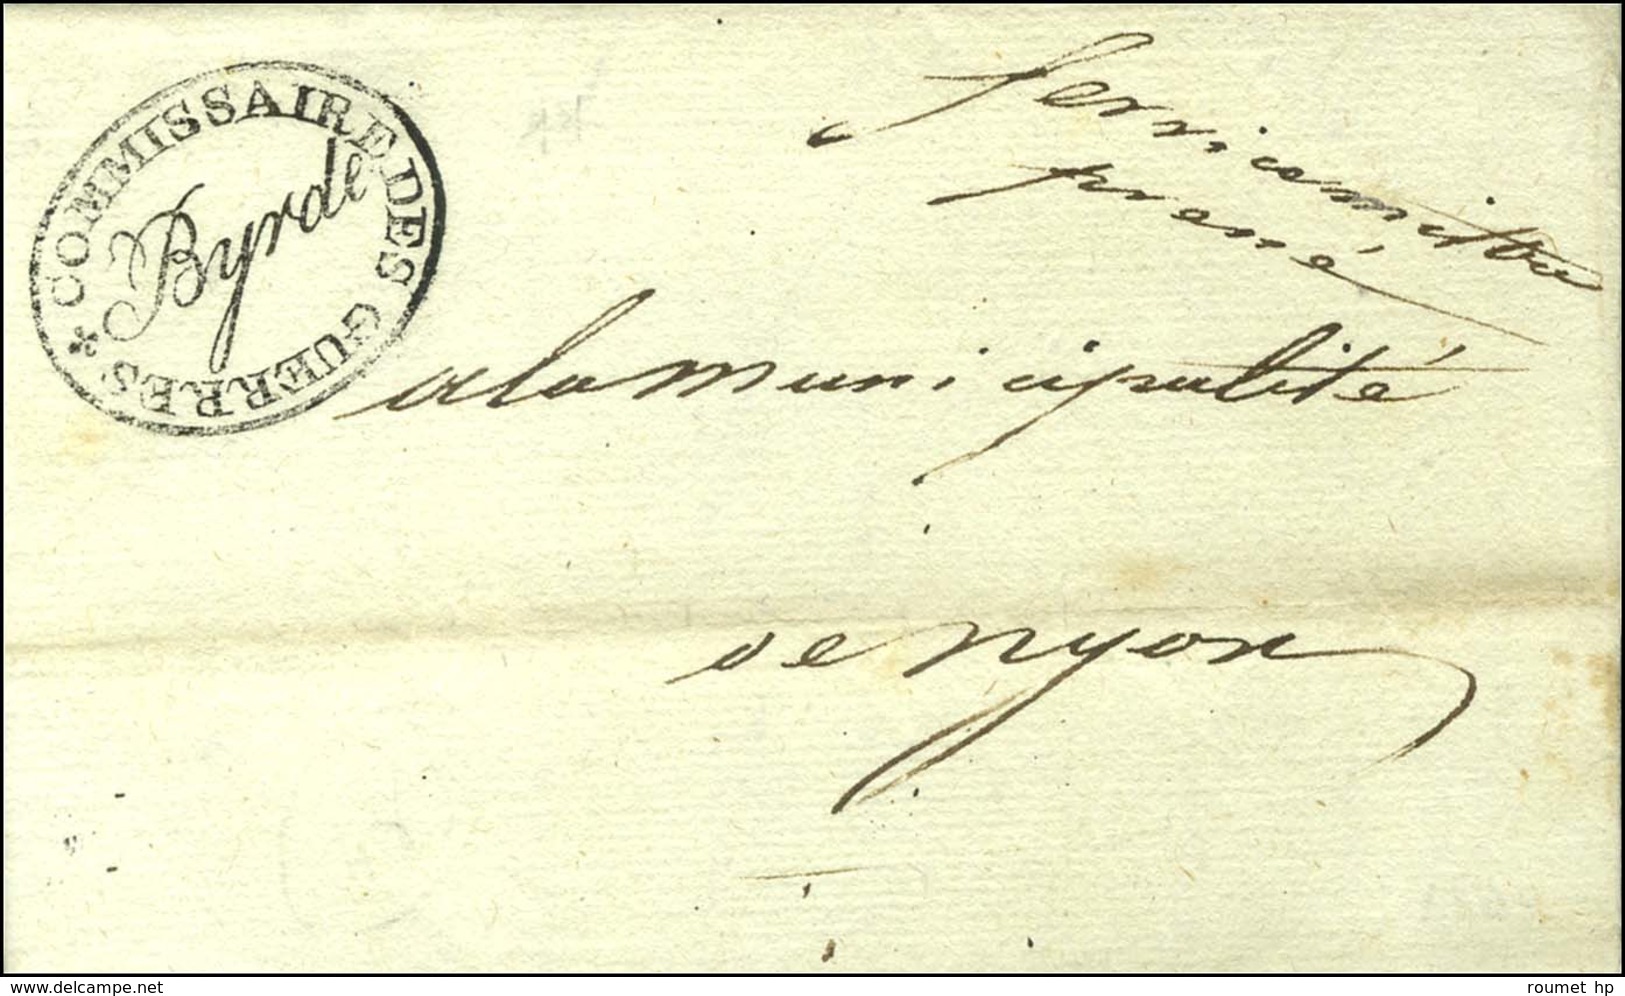 COMMISSAIRE DES GUERRES
Byrde
Service militre
pressé
a la municipalité
de nyon
delcampe.net
roumet_hp